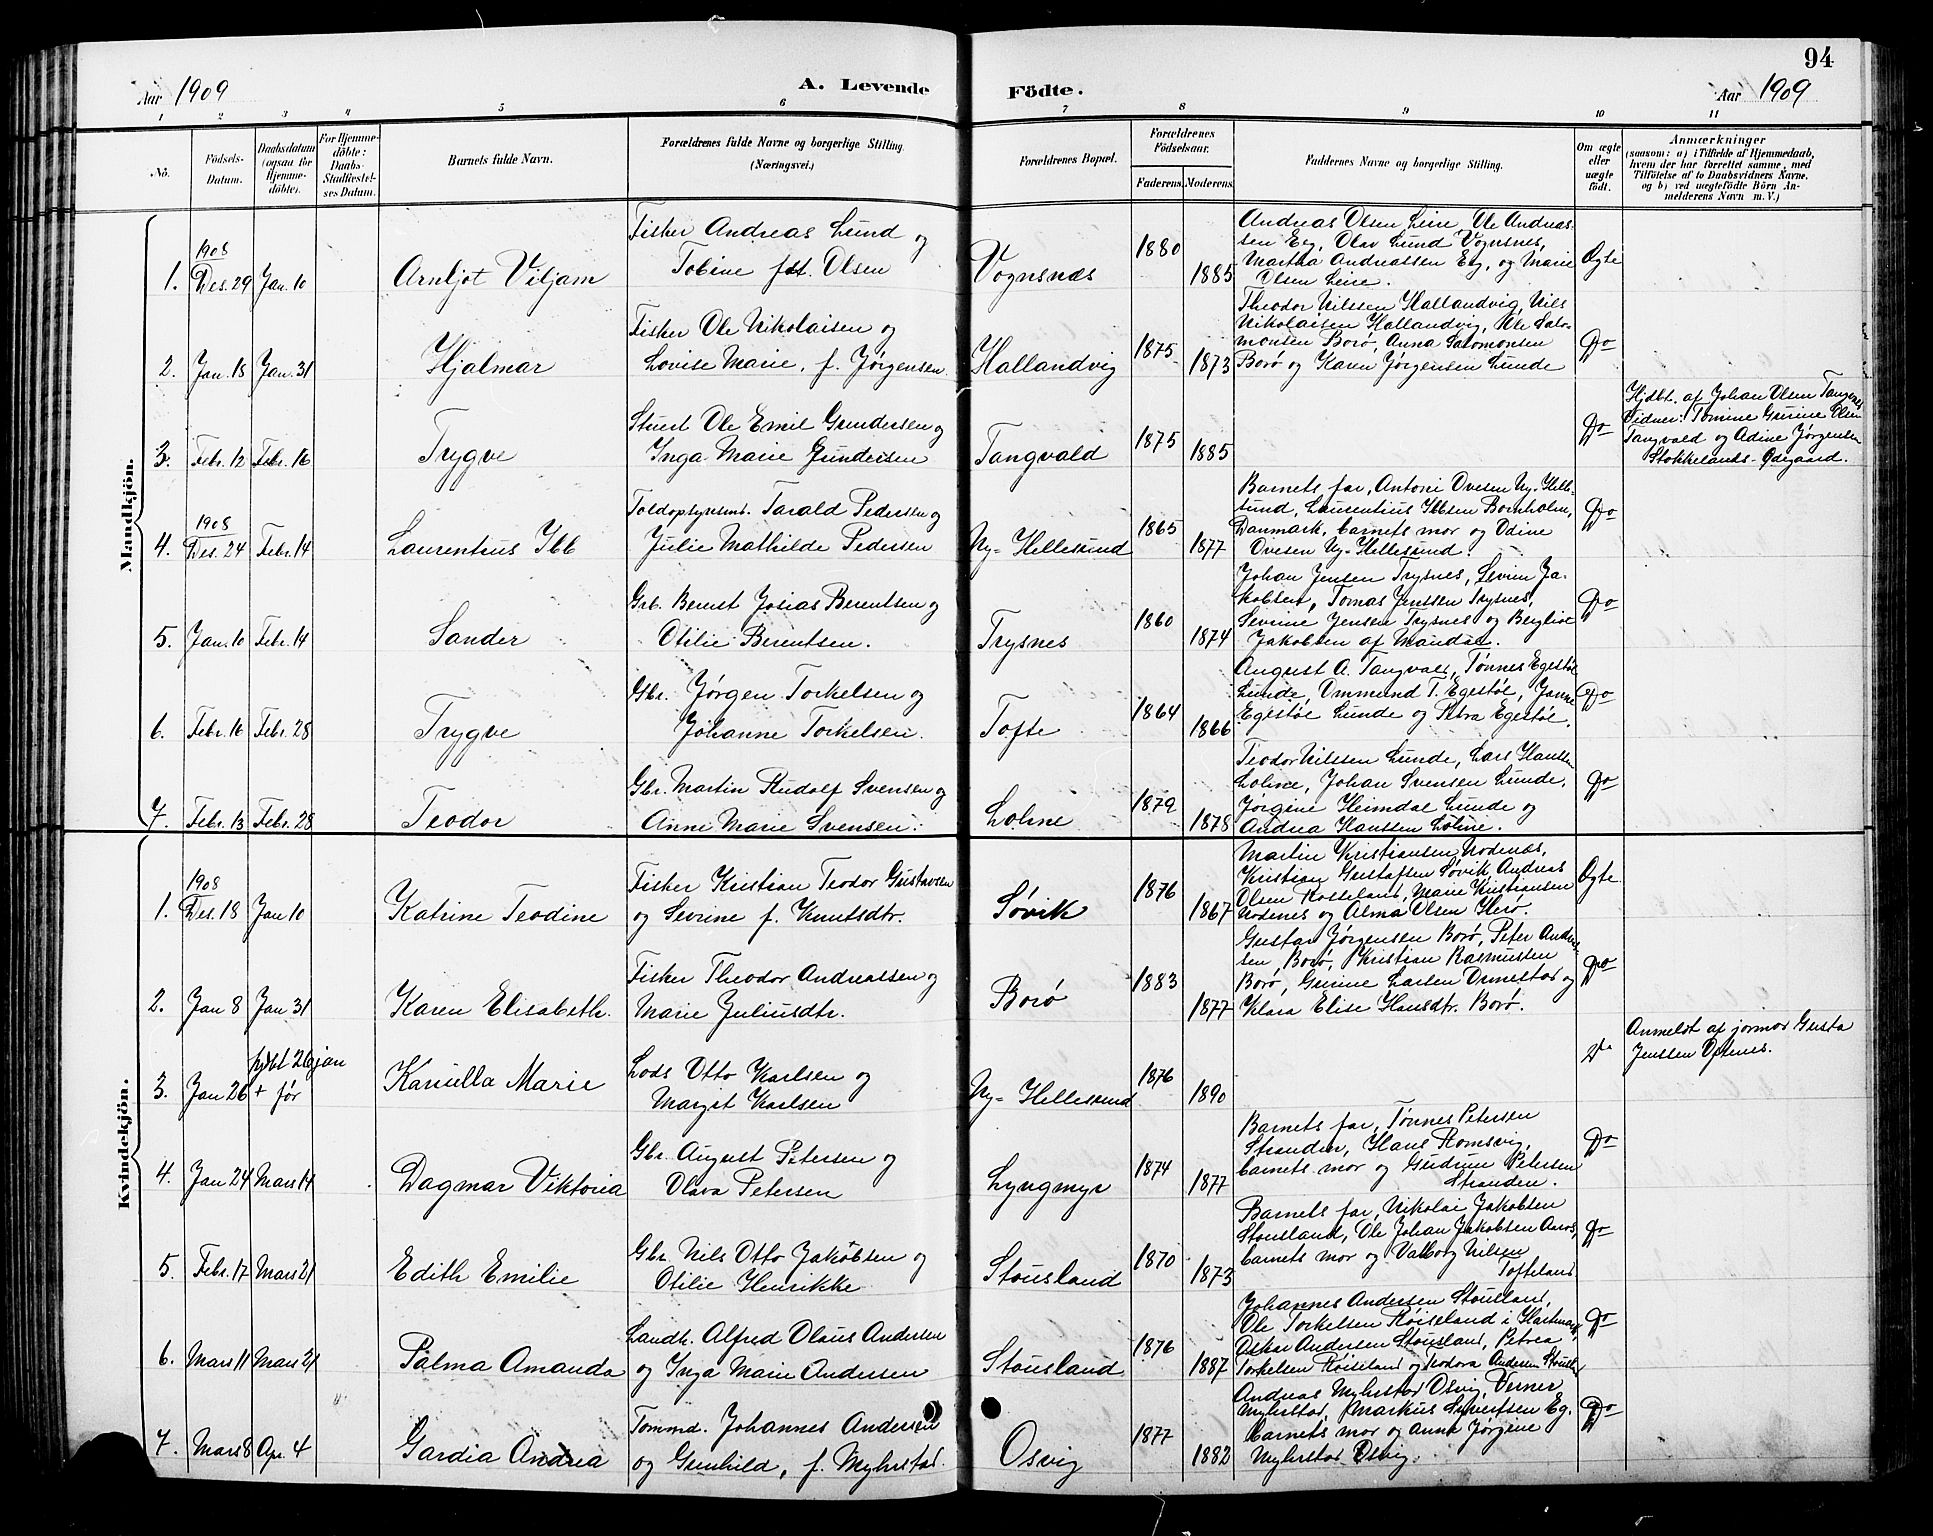 94
Aar 1909
A. Levende Födte.
Aar 1909
1 2 3 4 5 6 7 8 9 10 11
No.
Födsels-Datum.
Daabsdatum (ogsaa for Hjemme-döbte).
For Hjemme-döbte: Daabs-Stadfæstel-ses Datum.
Barnets fulde Navn.
Forældrenes fulde Navne og borgerlige Stilling. (Næringsvei.)
Forældrenes Bopæl.
Forældrenes Födselsaar.
Faderens. Moderens.
Faddernes Navne og borgerlige Stilling.
Om ægte eller uægte født.
Anmærkninger
(saasom: a) i Tilfælde af Hjemmedaab, hvem der har forrettet samme, med Tilföielse af to Daabsvidners Navne, og b) ved uægtefödte Börn An-melderens Navn m. V.)
Mandkjön.
1. 1908 Des. 29 Jan. 10 Arnljot Viljam
Fisker Andreas Lund og
Tobine fdt. Olsen
Vognsnes
1880 1885
Andreas Olsen Leire, Ole Andreas-
sen Eg, Olav Lund Vognsnes,
Martha Andreassen Eg, og Marie
Olsen Leire.
Ægte
2. Jan. 18 Jan. 31 Hjalmar
Fisker Ole Nikolaisen og
Lovise Marie, f. Jørgensen
Hallandvig
1875 1873
Theodor Nilssen Hallandvig, Nils
Nikolaisen Hallandvig, Ole Salo-
monsen Borø, Anna Salomonsen
Borø og Karen Jørgensen Lunde
Do
3. Febr. 12 Febr. 16 Trygve
Stuert Ole Emil Gundersen og
Inga Marie Gundersen
Tangvald
1875 1885
Do
Hjdbt. af Johan Olsen Tangenes
Vidner: Tomine Gurine Olsen
Tangvald og Adine Jørgensen
Stokkelands-Ødegaard.
4. 1908 Des. 24 Febr. 14 Laurentius Ibb
Toldopsynsmt. Tarald Pedersen og
Julie Mathilde Pedersen
Ny-Hellesund
1865 1877
Barnets far, Antoni Ovesen Ny-Helle-
sund, Laurentius Ibbsen Bornholm,
Danmark, barnets mor og Odine
Ovesen Ny-Hellesund.
Do
5. Jan. 10 Febr. 14 Sander
Grb. Berent Josias Berentsen og
Otilie Berentsen.
Trysnes
1860 1874
Johan Jensen Trysnes, Severin Ja-
kobsen, Tomas Jenssen Trysnes,
Severine Jensen Trysnes og Bergliot
Jakobsen af Mandal.
Do
6. Febr. 16 Febr. 28 Trygve
Gbr. Jørgen Torkelsen og
Johanne Torkelsen.
Tofte
1864 1866
August A. Tangvald, Tønnes Egestøl
Lunde, Ommund T. Egestøl, Janne
Egestøl Lunde og Petra Egestøl.
Do
7. Febr. 13 Febr. 28 Teodor
Gbr. Martin Rudolf Svensen og
Anne Marie Svensen.
Lohne
1879 1878
Teodor Nilssen Lunde, Lars Hanssen
Lohne, Johan Svensen Lunde,
Jørgine Heimdal Lunde og
Andrea Hanssen Lohne.
Do
Kvindekjön.
1. 1908 Des. 18 Jan 10 Katrine Teodine
Fisker Kristian Teodor Gustavsen
og Severine f. Knutsdtr.
Søvik
1876 1867
Martin Kristiansen Nodenes,
Kristian Gustafsen Søvik, Andreas
Olsen Rosseland, Marie Kristiansen
Nodenes og Alma Olsen Herø.
Ægte
2. Jan 8 Jan 31 Karen Elisabeth.
Fisker Theodor Andreassen og
Marie Juliusdtr.
Borø
1883 1877
Gustav Jørgensen Borø, Peter Andres-
sen, Borø, Kristian Rasmussen
Borø, Gurine Larsen Ormestad og
Klara Elise Hansdtr. Borø.
Do
3. Jan 26 hjdbt 26 jan + før Kamilla Marie
Lods Otto Karlsen og
Margit Karlsen
Ny-Hellesund
1876 1890
Do
Anmeldt af jormor Gusta
Jenssen Optenes.
4. Jan 24 Mars 14 Dagmar Viktoria
Gbr. August Petersen og
Olava Petersen
Lyngmyr
1874 1877
Barnets far, Tønnes Petersen
Stranden, Hans Romsvig,
barnets mor og Gudrun Petersen
Stranden.
Do
5. Febr. 17 Mars 21 Edith Emilie
Gbr Nils Otto Jakobsen og
Otilie Henrikke
Stousland
1870 1873
Barnets far, Nikolai Jakobsen
Stousland, Ole Johan Jakobsen Aaros,
barnets mor og Valborg Nilsen
Tofteland
Do
6. Mars 11 Mars 21 Palma Amanda
Landh. Alfred Olaus Andersen
og Inga Marie Andersen
Stousland
1876 1887
Johannes Andersen Stousland,
Ole Torkelsen Røiseland i Hartmark,
Oskar Andersen Stousland, Petrea
Torkelsen Røiseland og Teodora Andersen Stousland
Do
7. Mars 8 Apr. 4 Gardia Andrea
Tømmd. Johannes Andersen
og Gunhild, f. Myhrstad.
Osvig
1877 1882
Andreas Myhrstad Osvig, Verner
Myhrstad, Markus Syvertsen Eg,
barnets mor og Anna Jørgine
Myhrstad Osvig.
Do